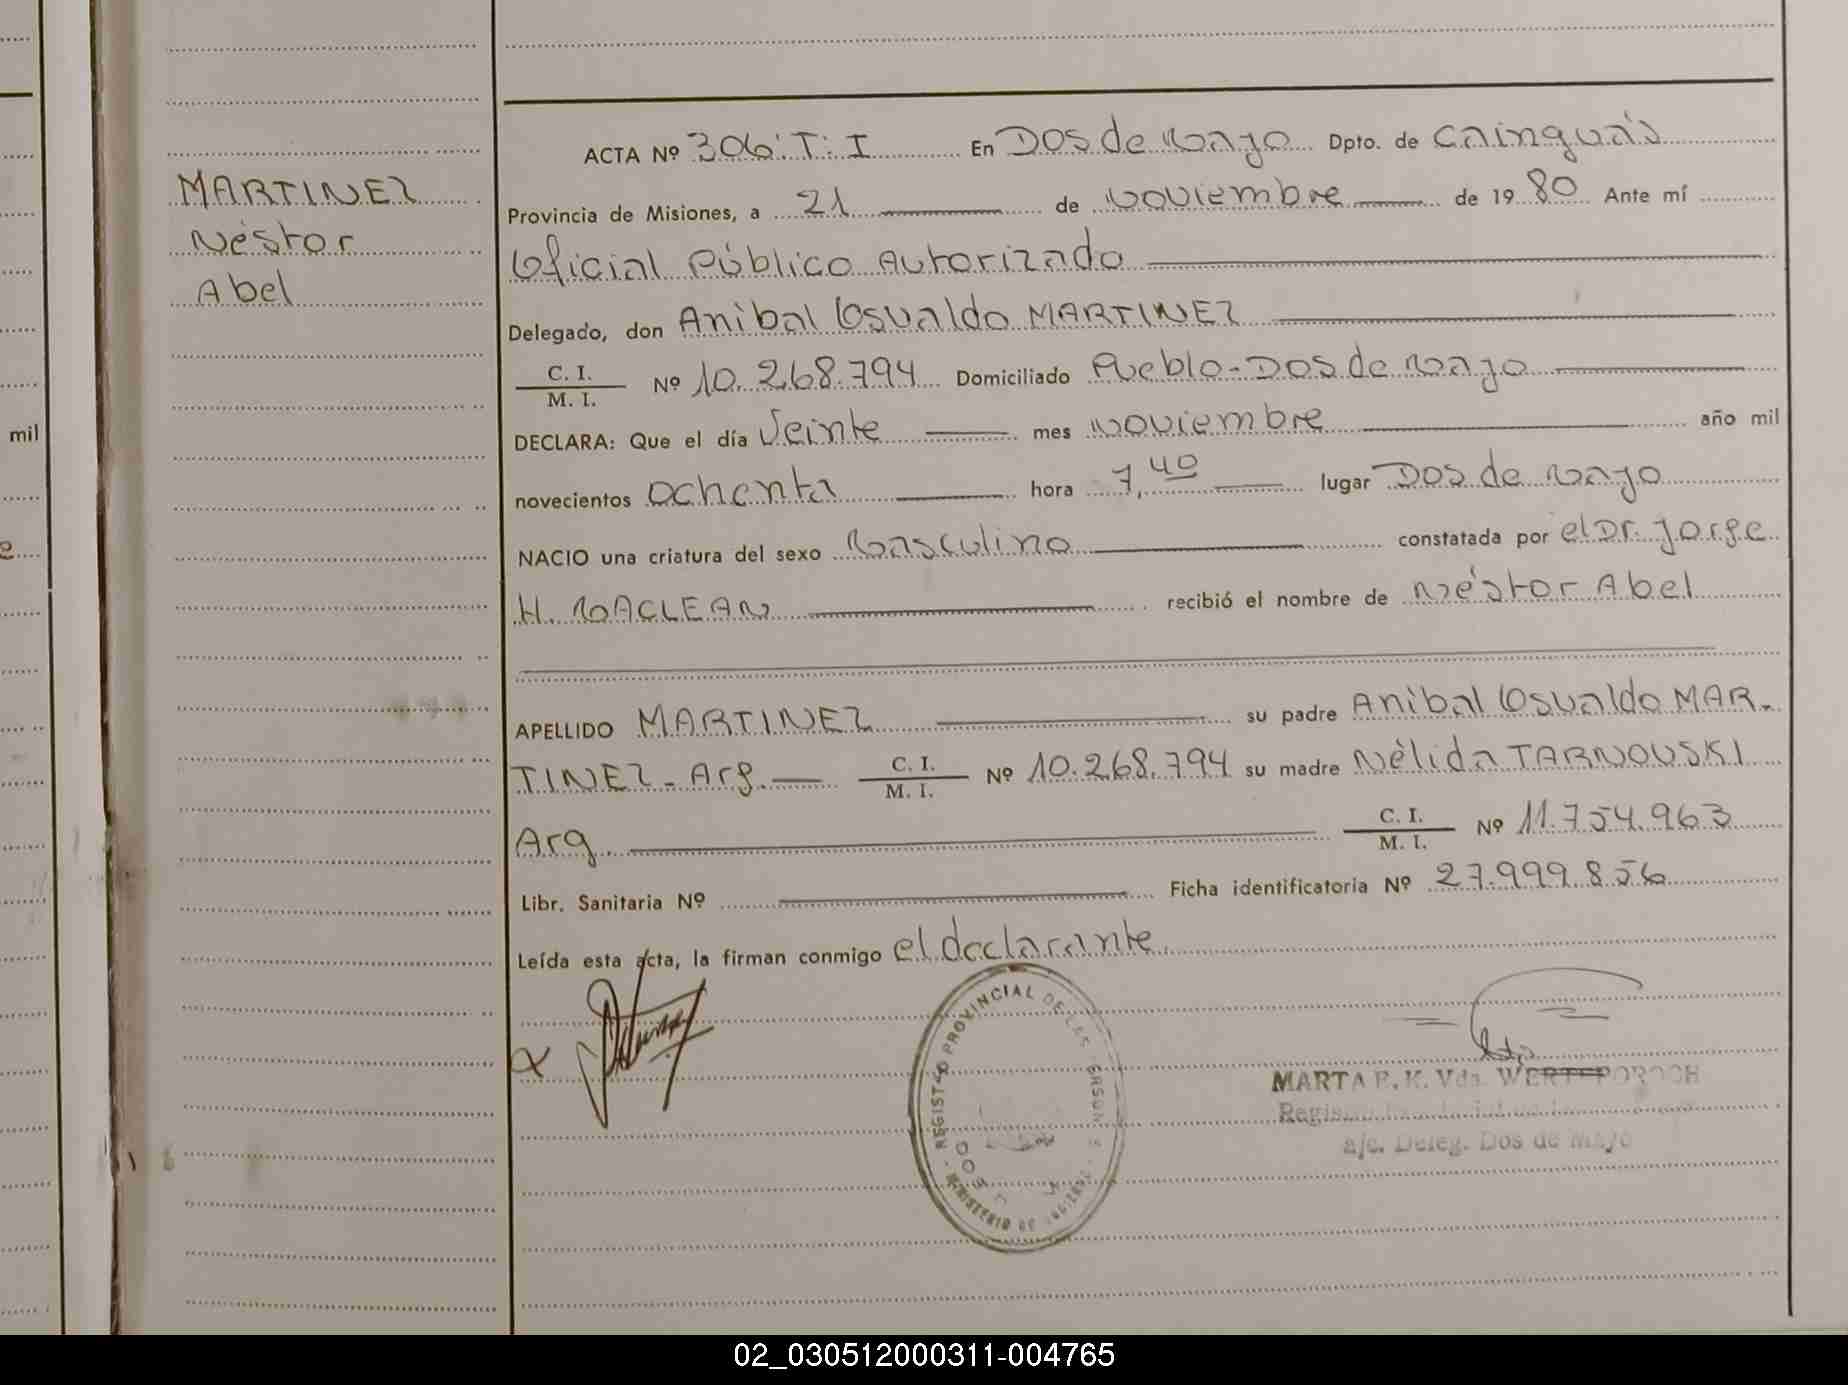 MARTINEZ
Néstor
Abel
mil
ACTA Nº 306 T: I En Dos de Mayo Dpto. de Cainguás
Provincia de Misiones, a 21 de Noviembre de 1980 Ante mí
Oficial Público Autorizado
Delegado, don Anibal Osvaldo MARTINEZ
C. I.
M. I. Nº 10.268.794 Domiciliado Pueblo - Dos de Mayo
DECLARA: Que el día Veinte mes Noviembre año mil
novecientos ochenta hora 7,40 lugar Dos de Mayo
NACIO una criatura del sexo Masculino constatada por el Dr. Jorge
H. MACLEAN recibió el nombre de Néstor Abel
APELLIDO MARTINEZ su padre Anibal Osvaldo MAR-
TINEZ - Arg. C. I. M. I. Nº 10.268.794 su madre Nélida TARNOUSKI
Arg. C. I. M. I. Nº 11.754.963
Libr. Sanitaria Nº Ficha identificatoria Nº 27.999.856
Leída esta acta, la firman conmigo el declarante
REGISTRO PROVINCIAL DE LAS PERSONAS
MINISTERIO DE
MARTA E. K. Vda. WERTEPOROCH
a/c. Deleg. Dos de Mayo
02_030512000311-004765